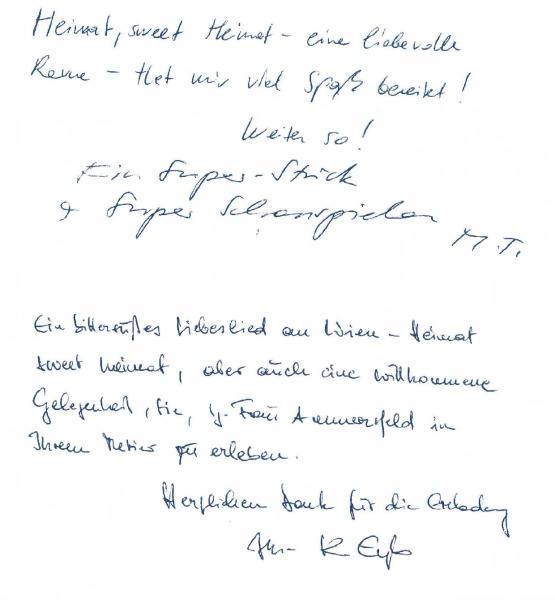 Heimat, sweet Heimat – eine liebevolle
Revue – Hat mir viel Spaß bereitet!
Weiter so!
Ein Super-Stück
+ Super Schauspieler
M.T.
Ein bittersüßes Liebeslied an Wien – Heimat
sweet heimat, aber auch eine willkommene
Gelegenheit, Sie, Frau in
Ihrem Metier zu erleben.
Herzlichen Dank für die Einladung